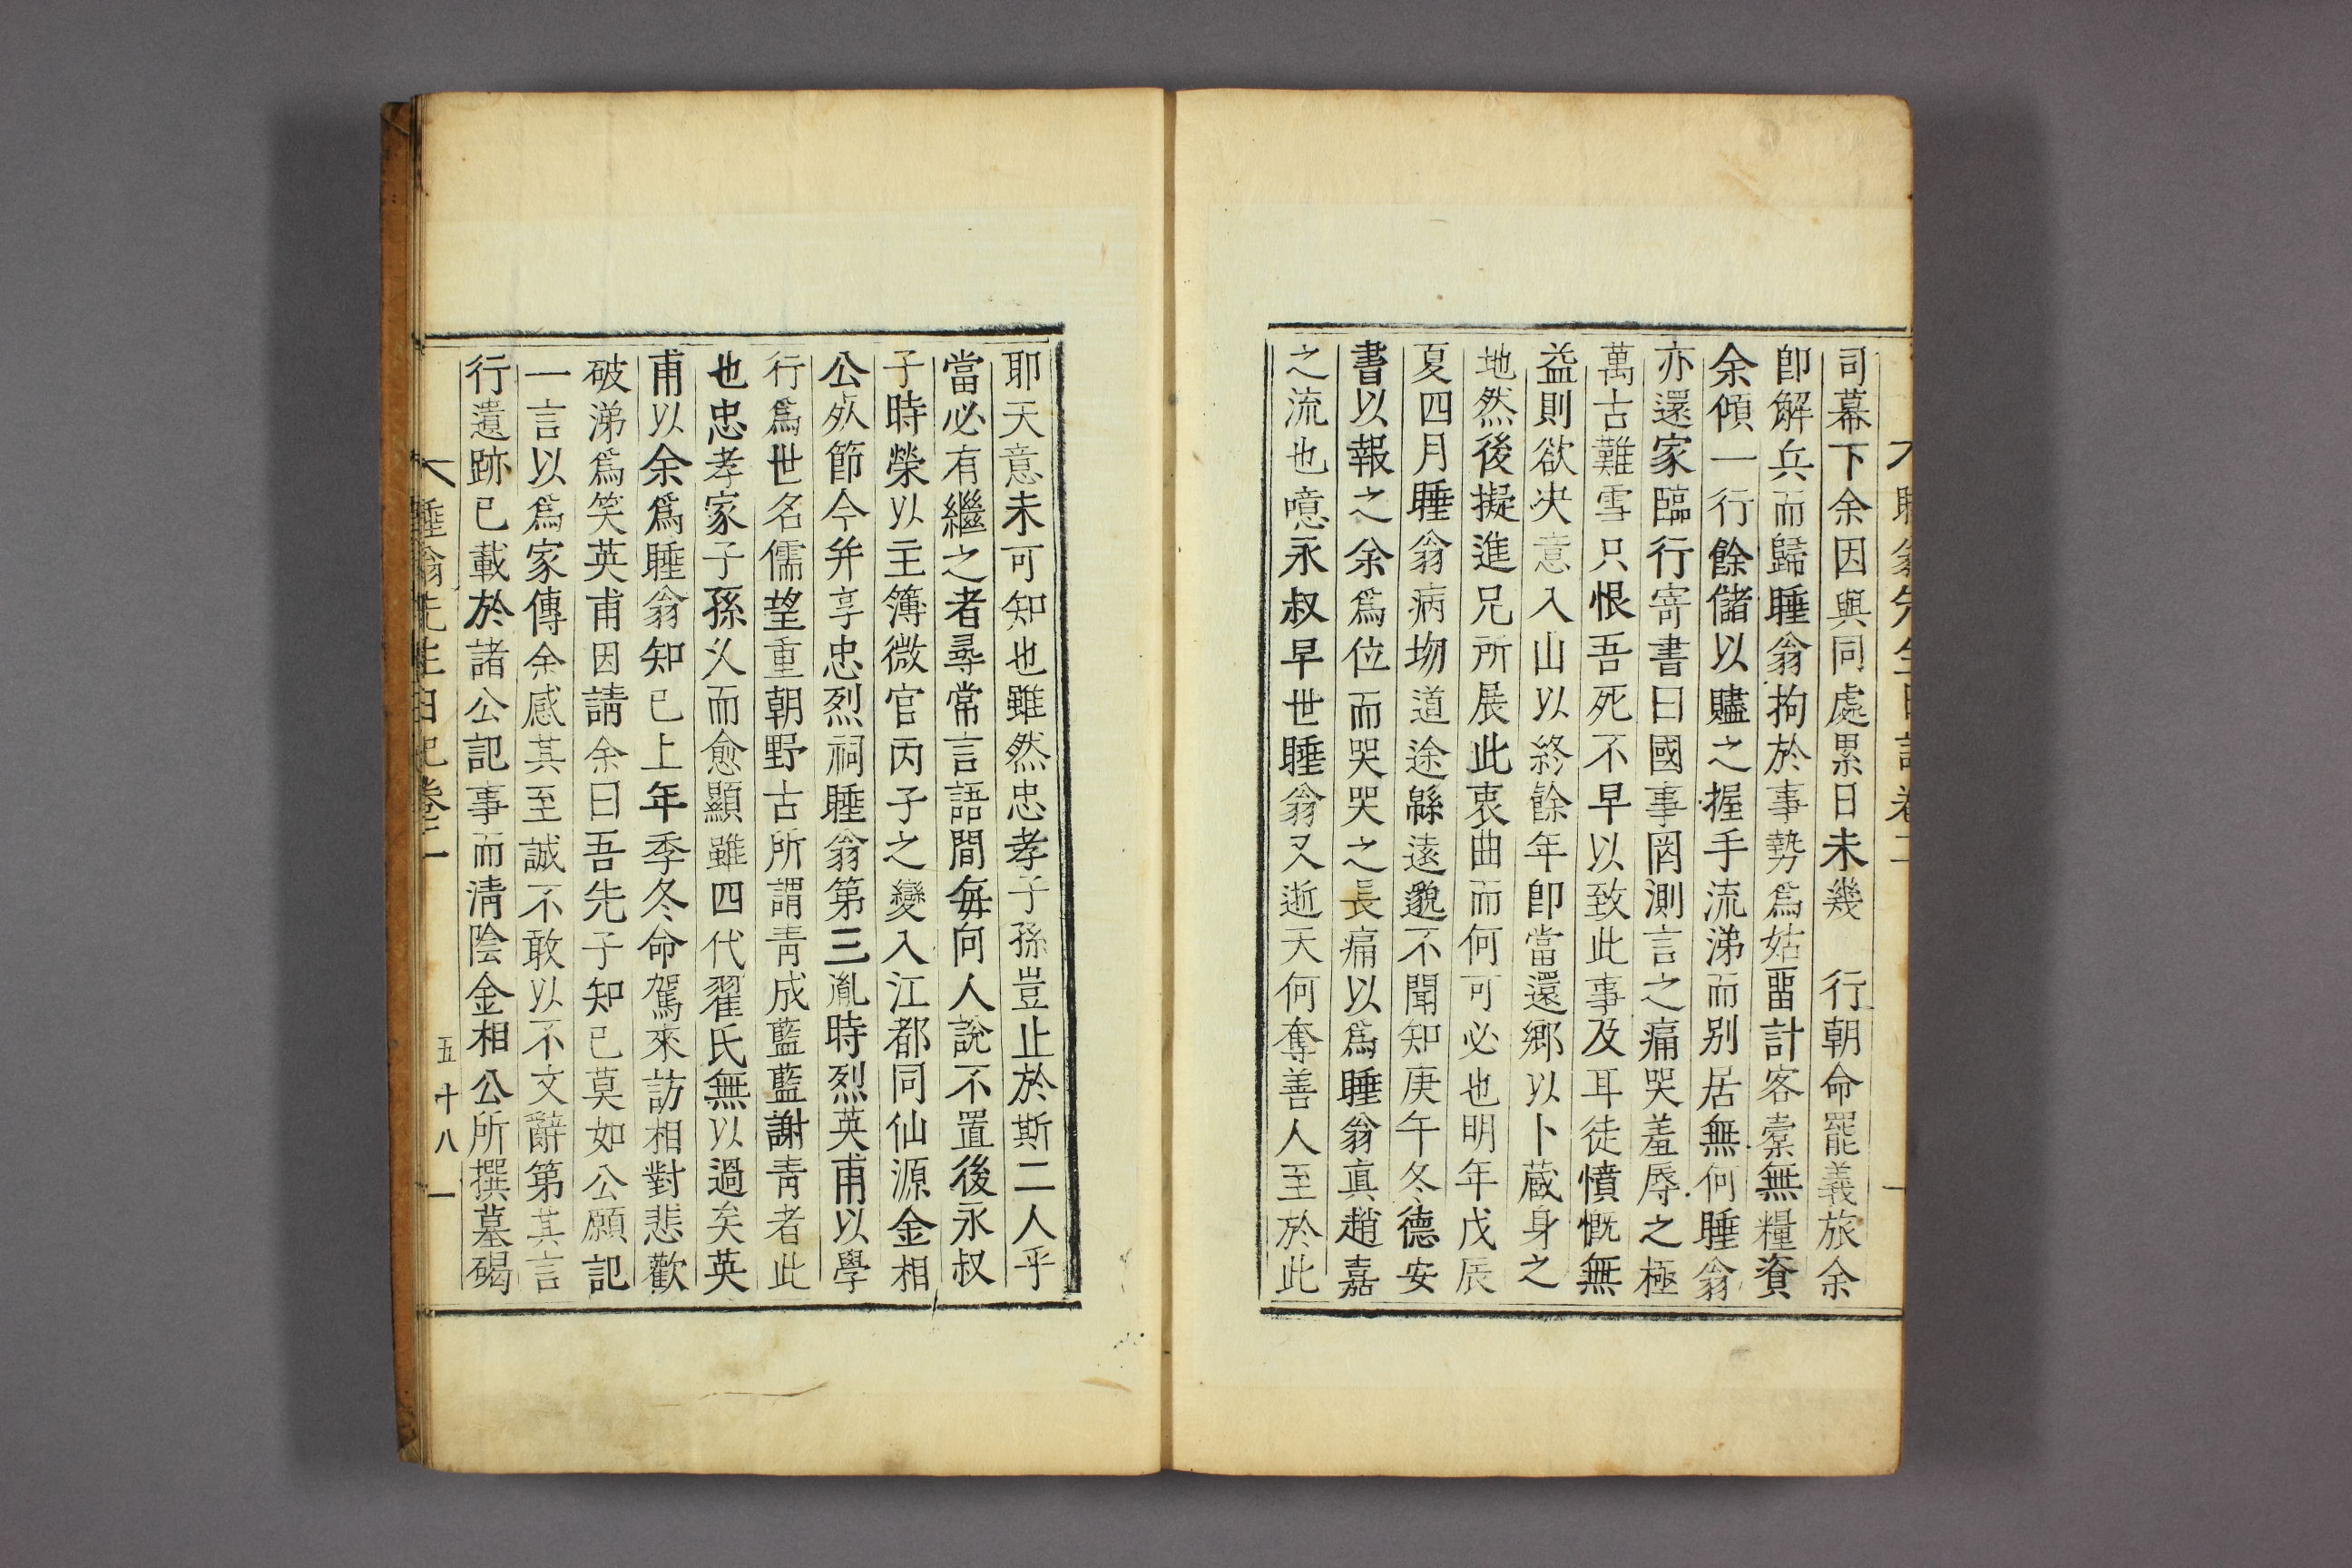 睡翁先生日記卷二
司幕下余因與同處累日未幾　行朝命罷義旅余
卽解兵而歸睡翁拘於事勢爲姑畱計客橐無糧資
余傾一行餘儲以贐之握手流涕而別居無何睡翁
亦還家臨行寄書曰國事罔測言之痛哭羞辱之極
萬古難雪只恨吾死不早以致此事及耳徒憤慨無
益則欲决意入山以終餘年卽當還鄕以卜蔵身之
地然後擬進兄所展此衷曲而何可必也明年戊辰
夏四月睡翁病歾道途緜遠邈不聞知庚午冬德安
書以報之余爲位而哭哭之長痛以爲睡翁真趙嘉
之流也噫永叔早世睡翁又逝天何奪善人至於此
耶天意未可知也雖然忠孝子孫豈止於斯二人乎
當必有繼之者尋常言語間每向人說不置後永叔
子時榮以主簿微官丙子之變入江都同仙源金相
公㱙節今并享忠烈祠睡翁第三胤時烈英甫以學
行爲世名儒望重朝野古所謂靑成藍藍謝靑者此
也忠孝家子孫乆而愈顯雖四代翟氏無以過矣英
甫以余爲睡翁知已上年季冬命駕來訪相對悲歡
破涕爲笑英甫因請余曰吾先子知已莫如公願記
一言以爲家傳余感其至誠不敢以不文辭第其言
行遺跡已載於諸公記事而淸陰金相公所撰墓碣
睡翁先生日記卷二
五十八